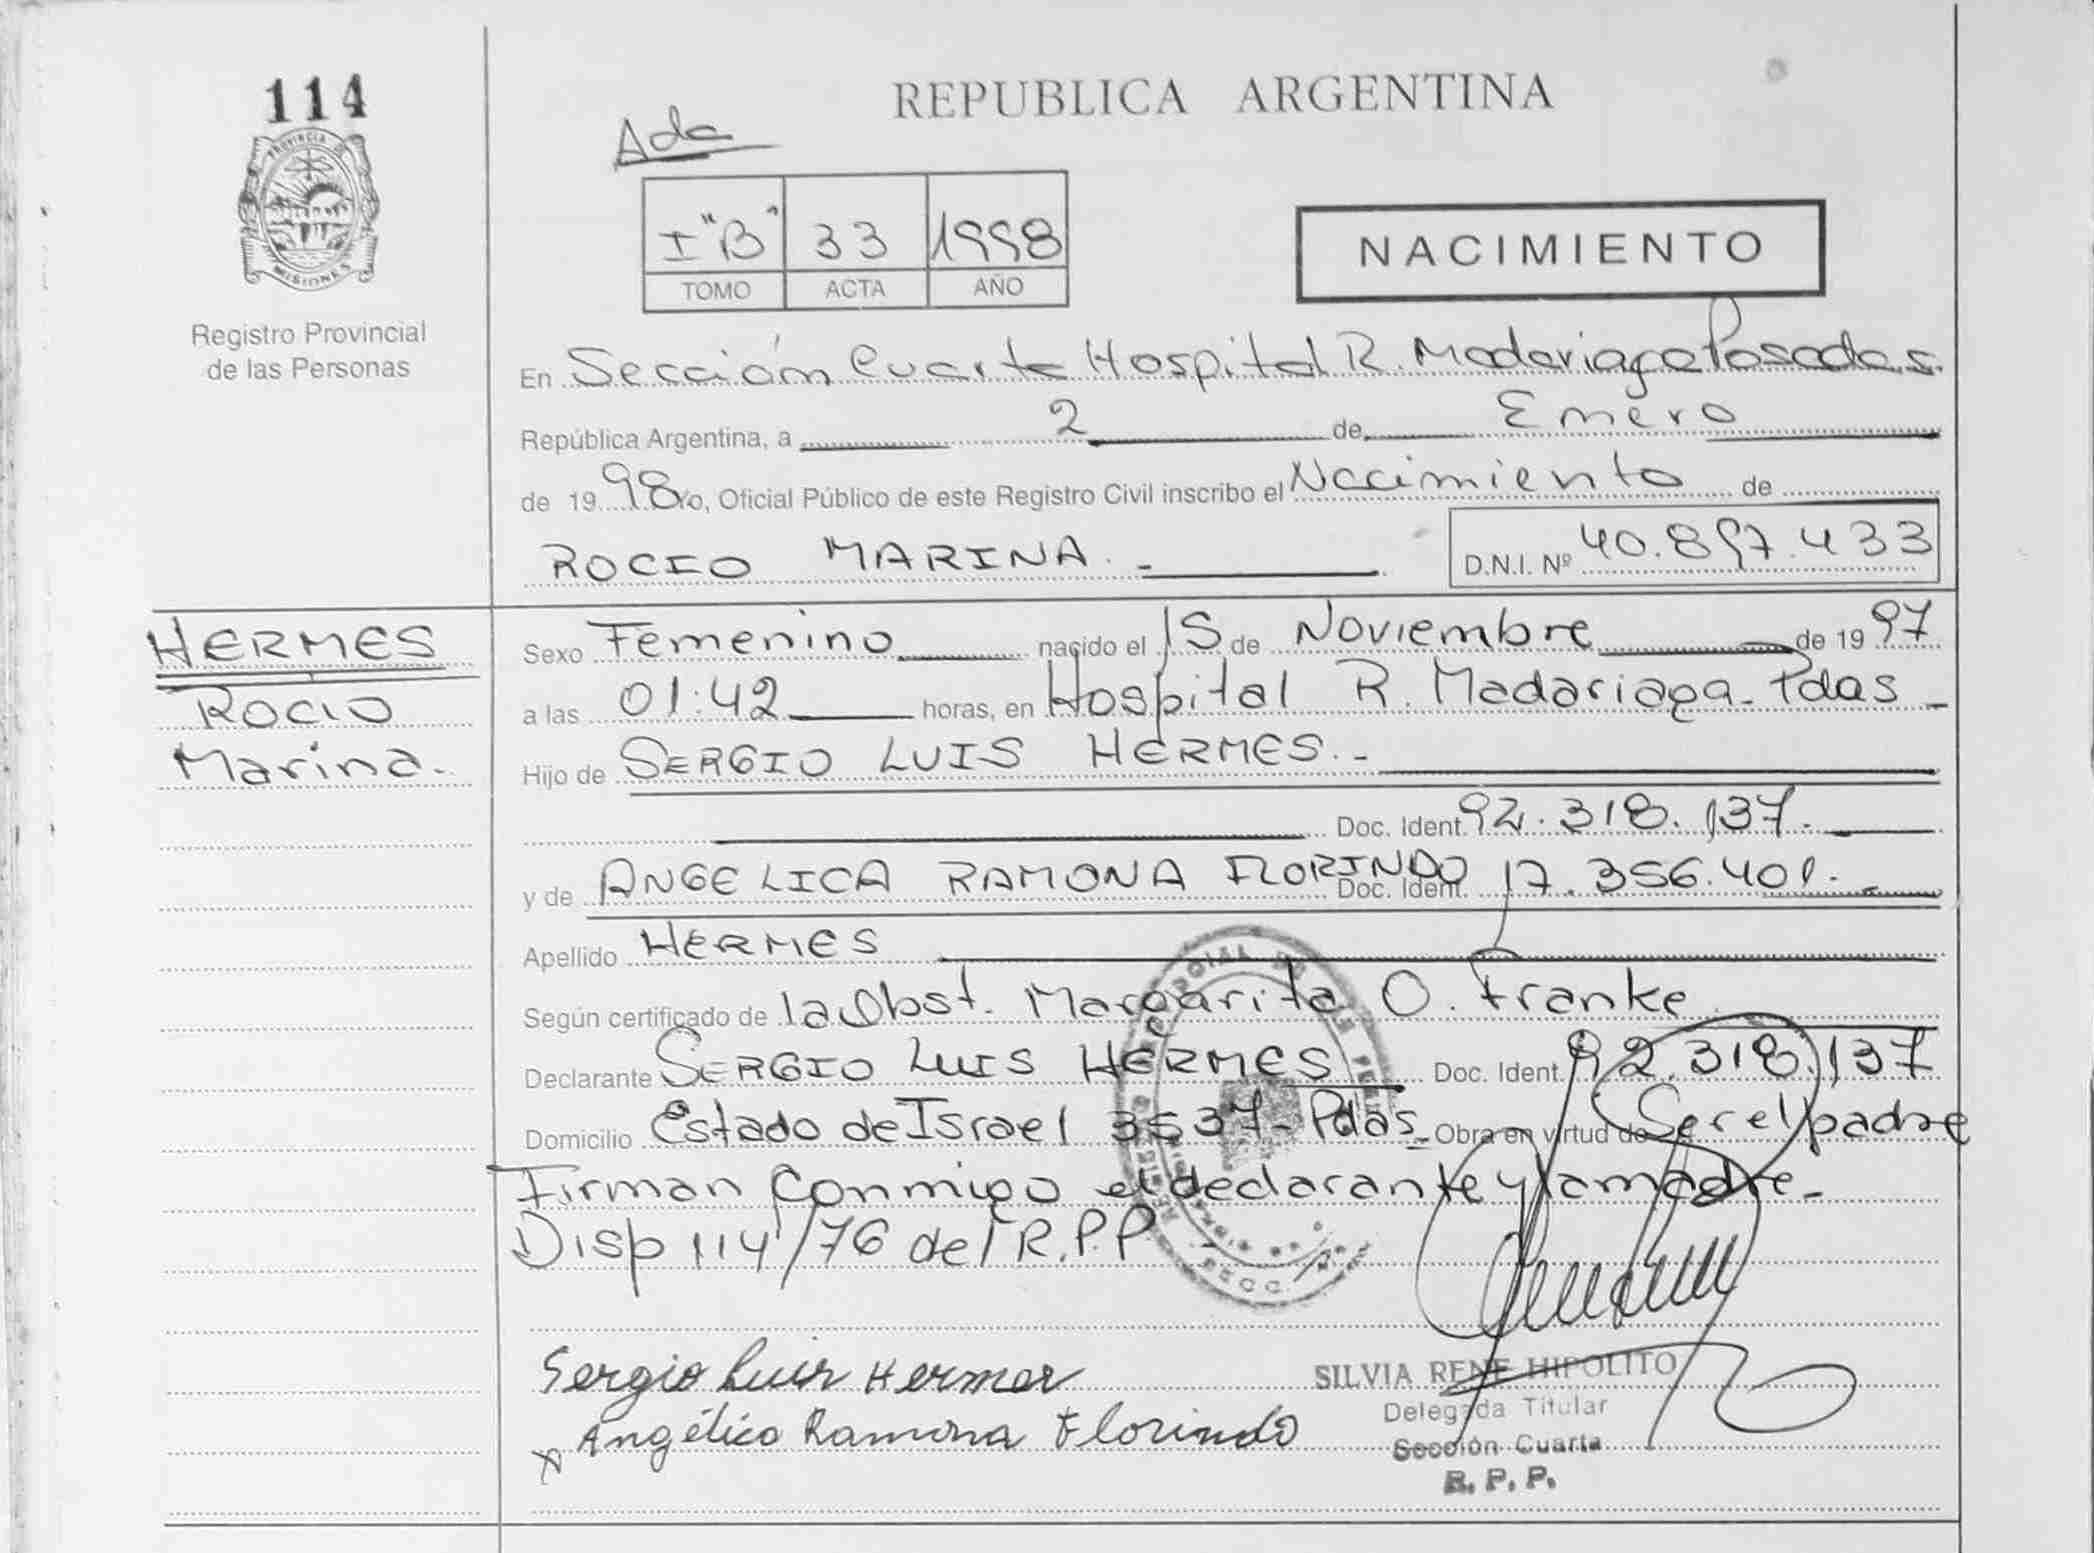 114
PROVINCIA DE
MISIONES
Registro Provincial
de las Personas
REPUBLICA ARGENTINA
Ada
I "B" 33 1998
TOMO ACTA AÑO
NACIMIENTO
En Sección Cuarta Hospital R. Madariaga Posadas.
República Argentina, a 2 de Enero
de 1998 Yo, Oficial Público de este Registro Civil inscribo el Nacimiento de
ROCIO MARINA.- D.N.I. Nº 40.897.433
HERMES
ROCIO
Marina.-
Sexo Femenino nacido el 15 de Noviembre de 1997
a las 01:42 horas, en Hospital R. Madariaga. Pdas -
Hijo de SERGIO LUIS HERMES.-
Doc. Ident. 92.318.137.-
y de ANGELICA RAMONA FLORINDO Doc. Ident. 17.356.401.-
Apellido HERMES
Según certificado de la Obst. Margarita O. Franke
Declarante SERGIO LUIS HERMES Doc. Ident. 92.318.137
Domicilio Estado de Israel 3537- Pdas. Obra en virtud de Ser el padre
Firman Conmigo el declarante y la madre.-
Disp 114/76 del R.P.P.-
Sergio Luis Hermes
x Angélica Ramona Florindo
SILVIA RENE HIPOLITO
Delegada Titular
Sección Cuarta
R. P. P.